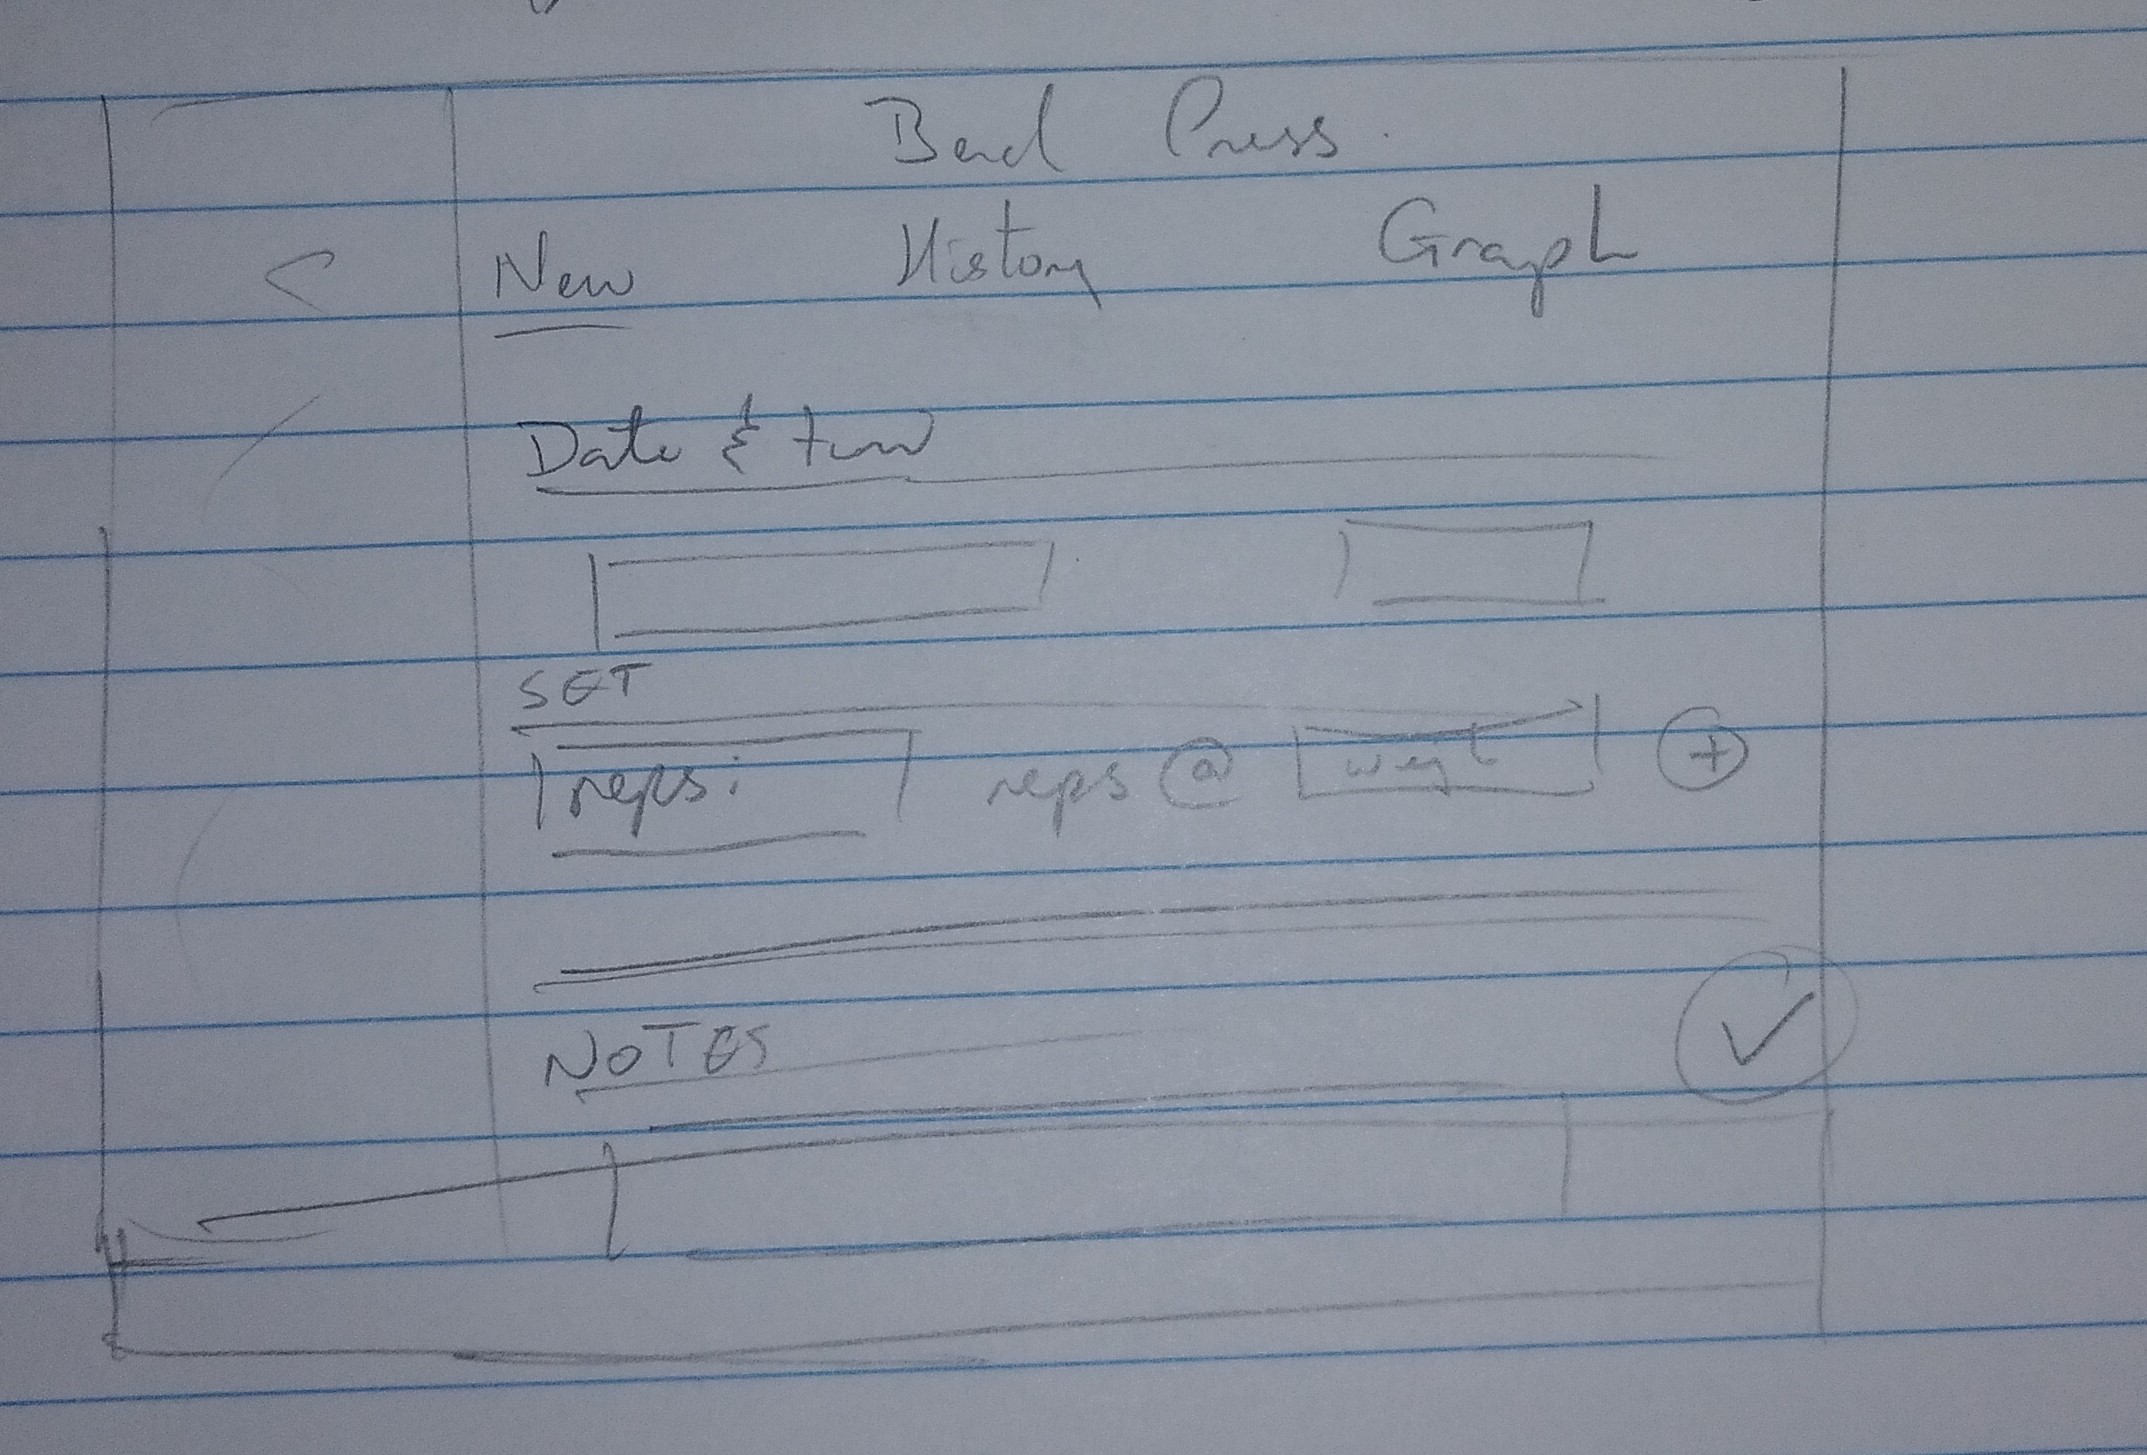 Bend Press.
< New History Graph
Date & time
SET
reps: reps @ weight +
NOTES